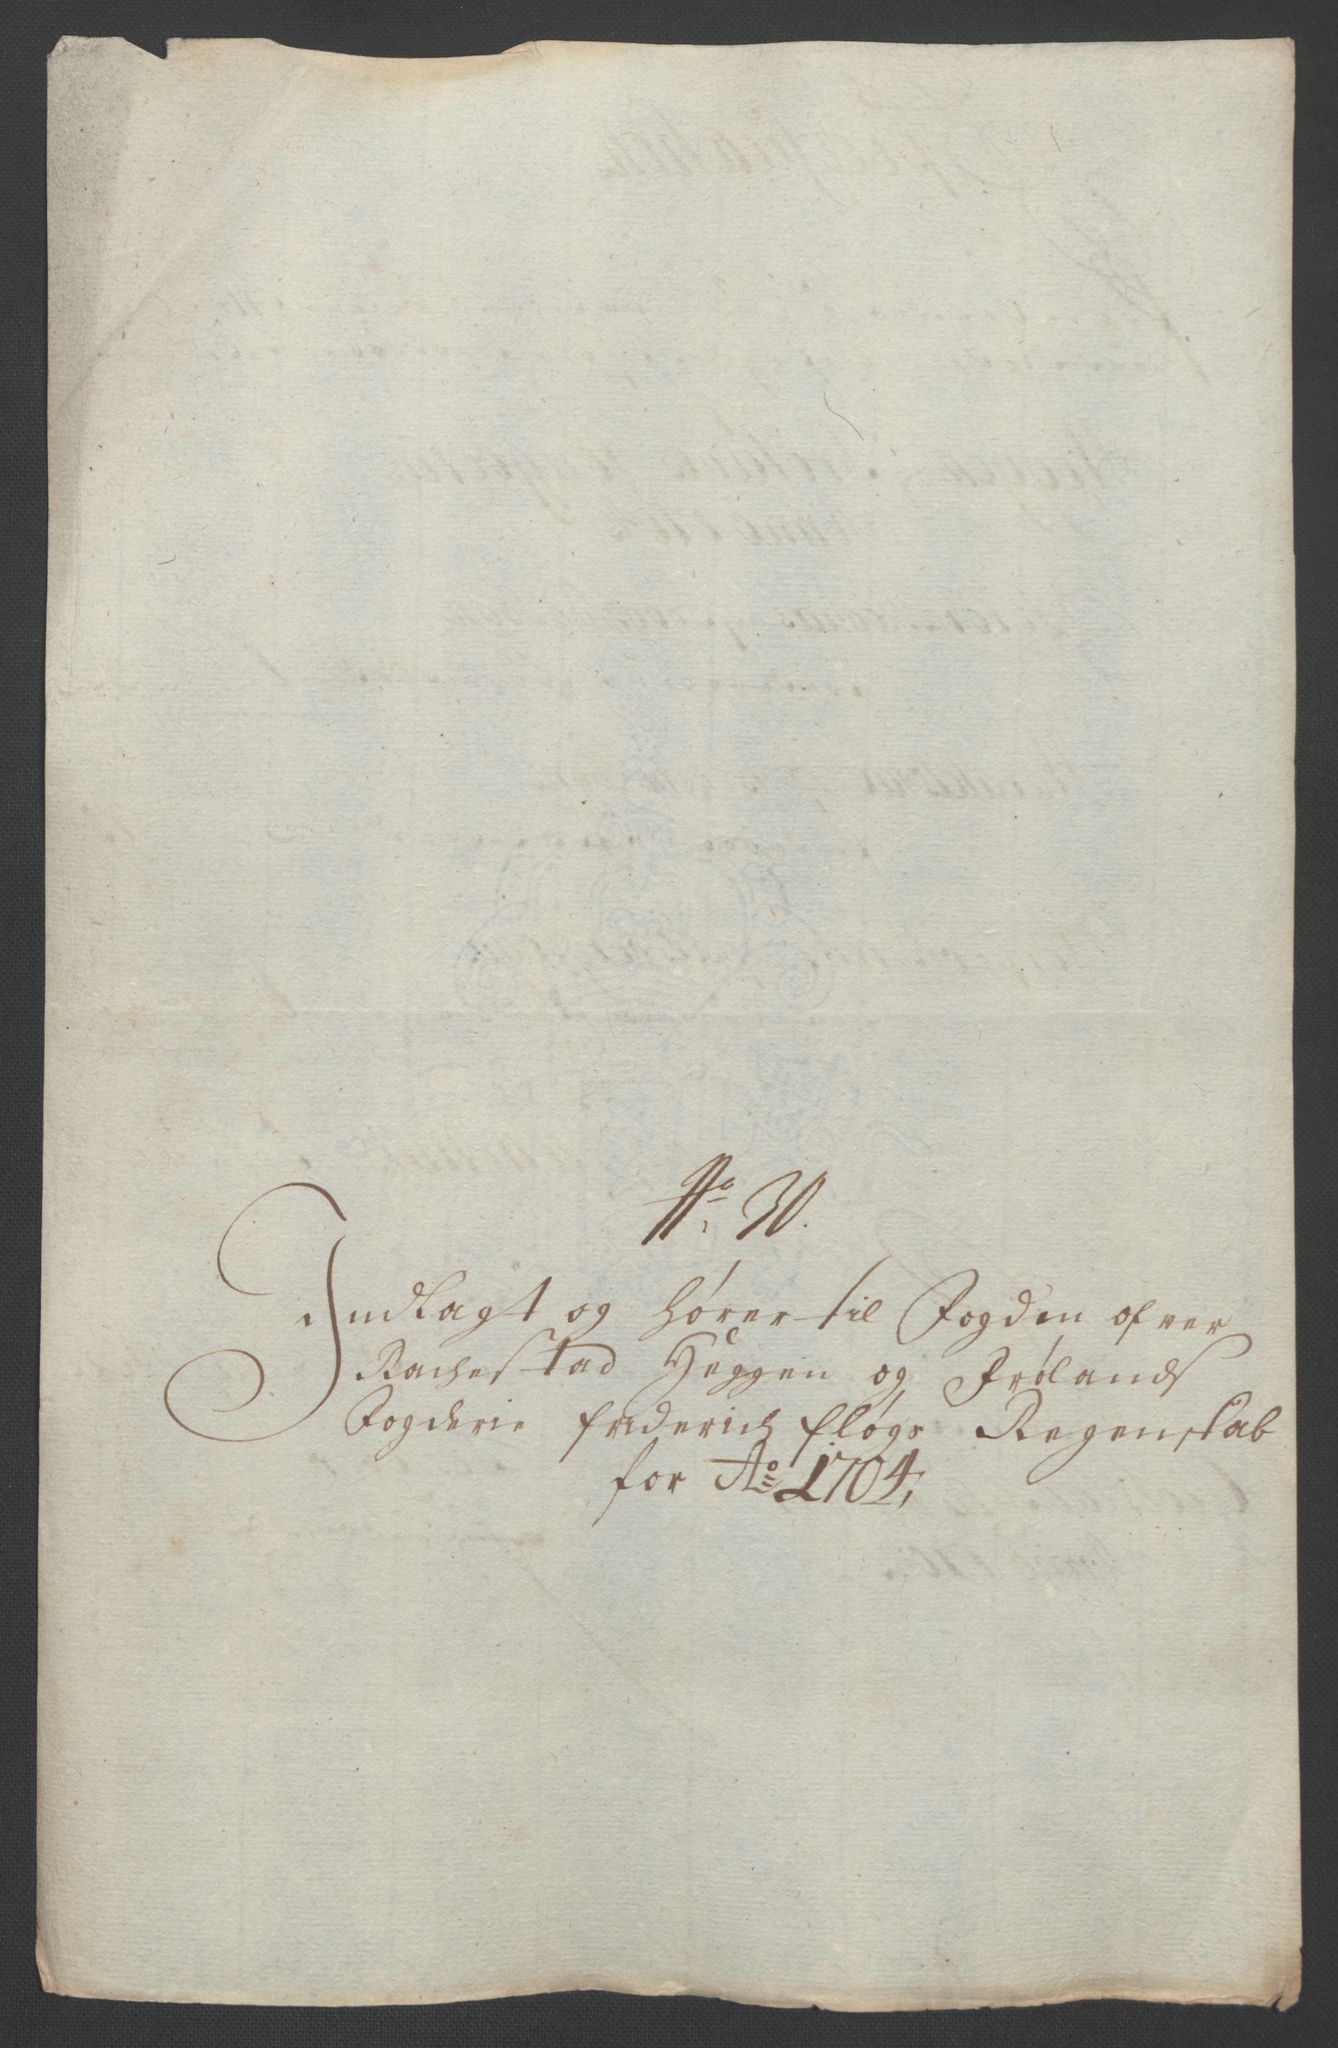 No. 30.
Indlagt og hører til Fogden ofver
Rachestad Heggen og Frølands
Fogderie friderich fløgs Regenskab
for Ao 1704,